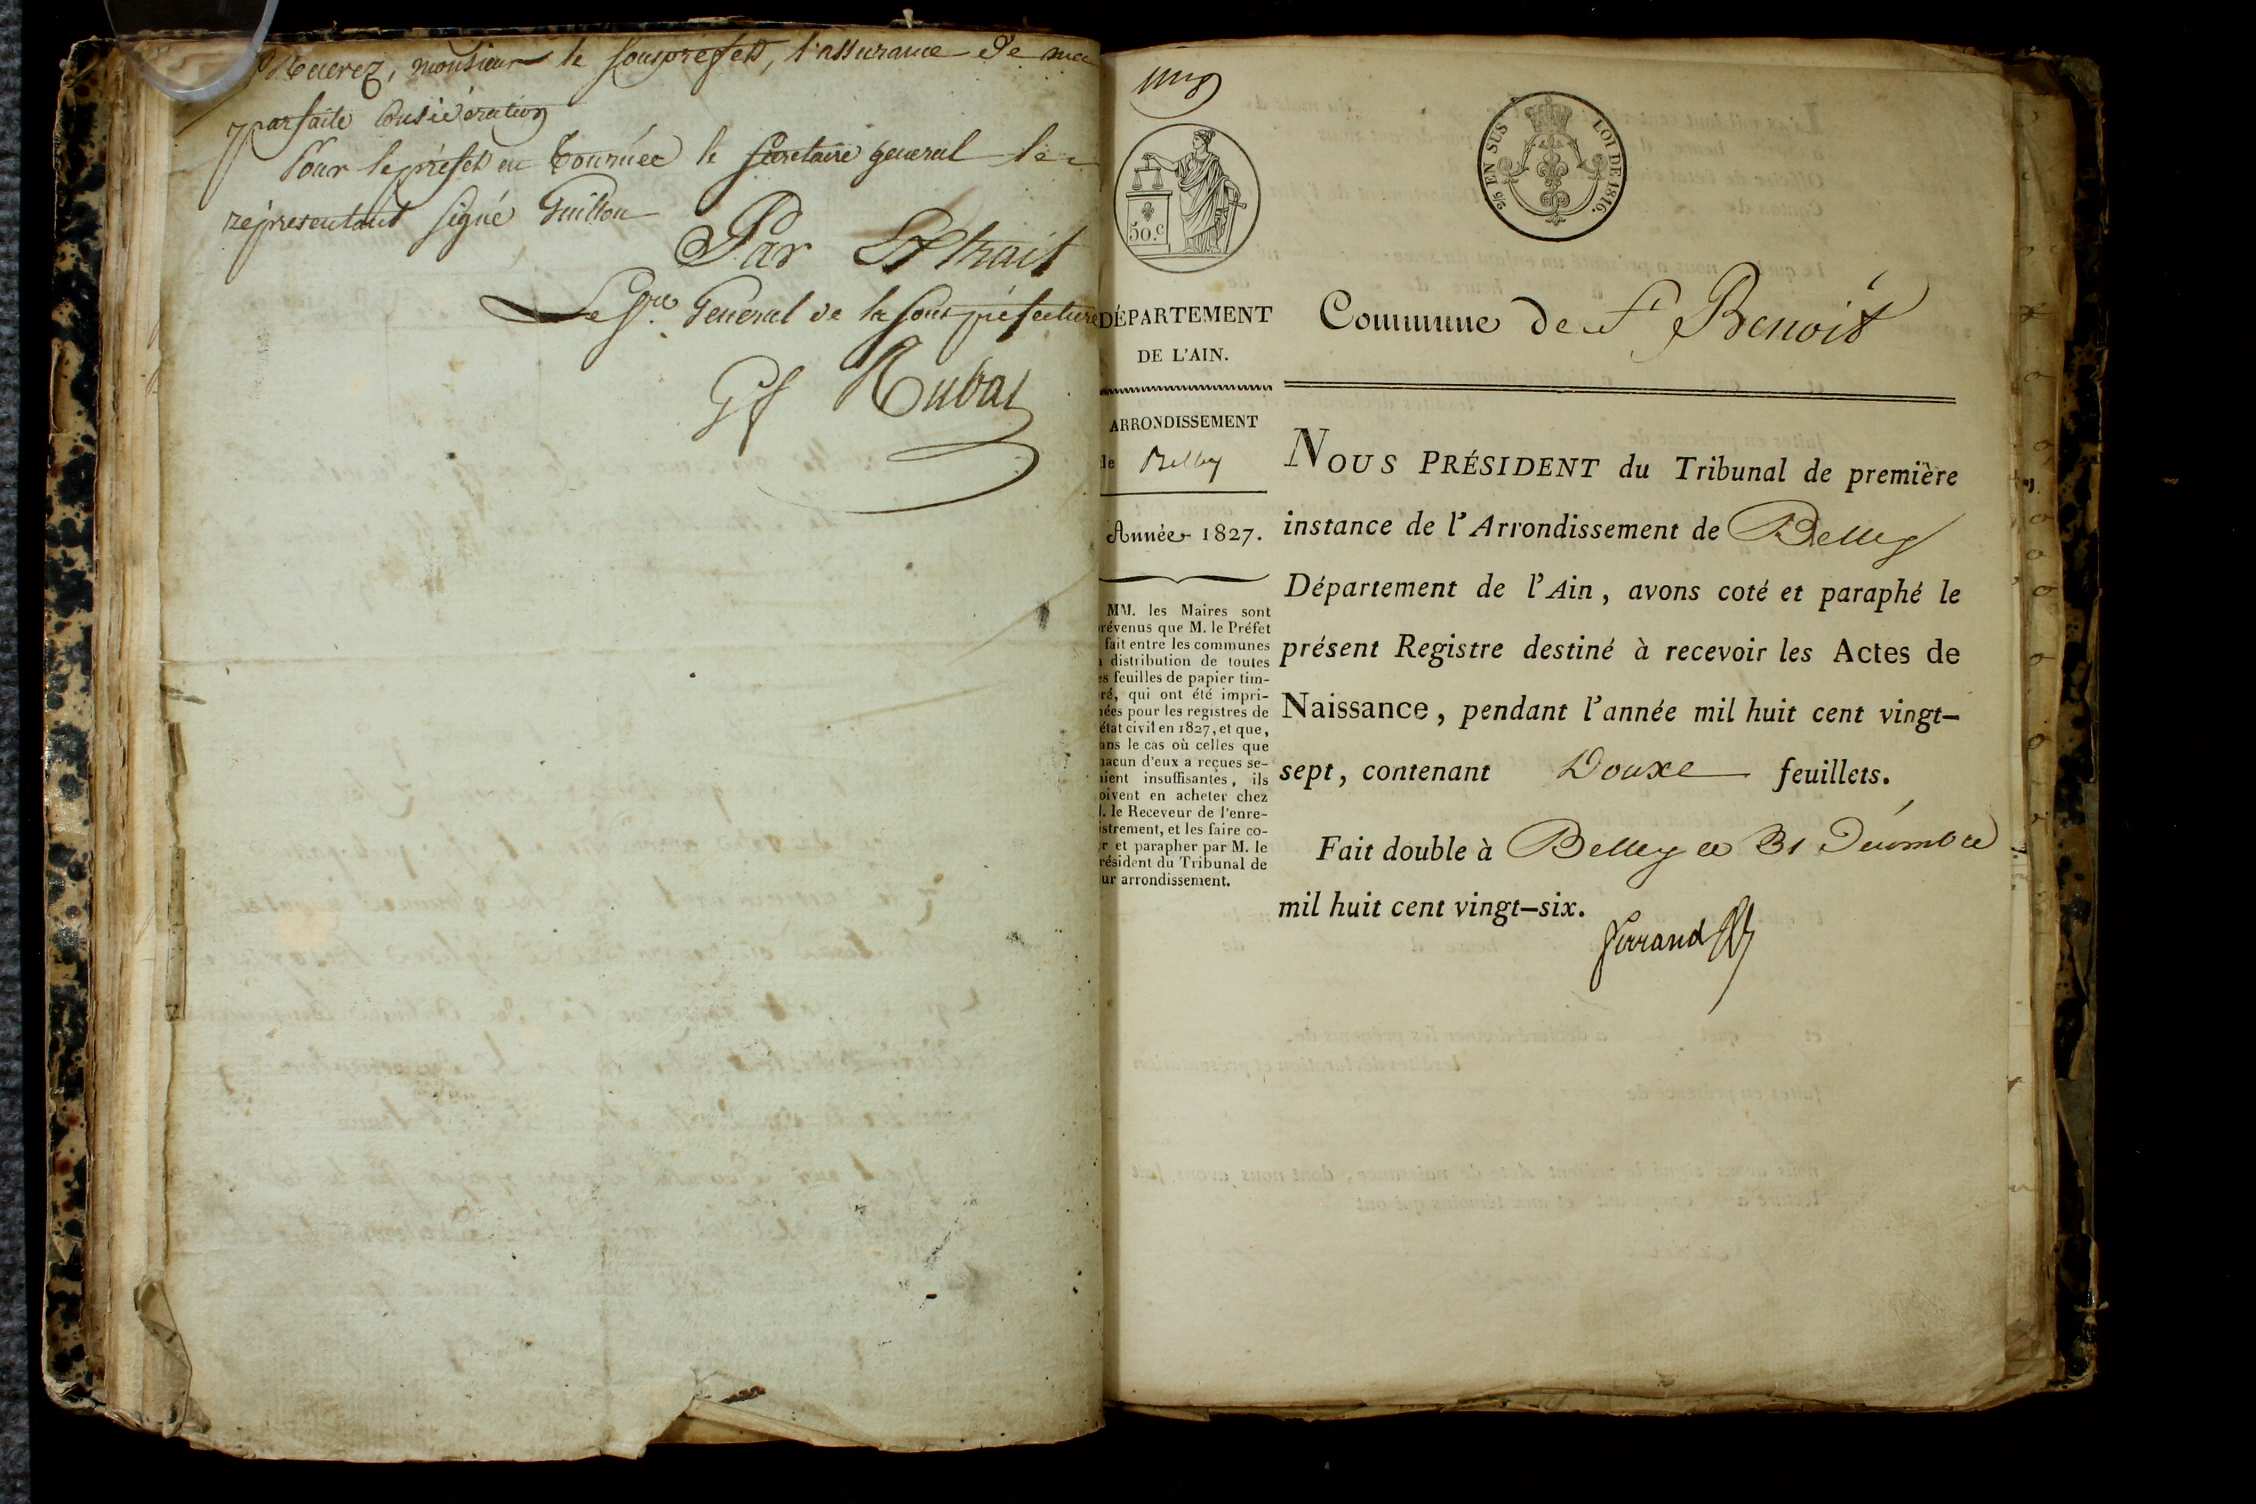 Recevez, monsieur le souspréfet, l'assurance de ma
parfaite consideration
Pour le préfet en tournée le secretaire general le
représentant signé Guillon
Par Extrait
Le Sre General de la sous préfecture
Rubat
50.c
25 EN SUS
LOI DE 1816.
DÉPARTEMENT
DE L'AIN.
ARRONDISSEMENT
de Belley
Année 1827.
MM. les Maires sont
prévenus que M. le Préfet
fait entre les communes
distribution de toutes
es feuilles de papier tim-
ré, qui ont été impri-
mées pour les registres de
état civil en 1827, et que,
ans le cas où celles que
hacun d'eux a reçues se-
aient insuffisantes, ils
oivent en acheter chez
. le Receveur de l'enre-
istrement, et les faire co-
r et parapher par M. le
résident du Tribunal de
ur arrondissement.
Commune de St Benoit
NOUS PRÉSIDENT du Tribunal de première
instance de l'Arrondissement de Belley
Département de l'Ain, avons coté et paraphé le
présent Registre destiné à recevoir les Actes de
Naissance, pendant l'année mil huit cent vingt-
sept, contenant Douxe feuillets.
Fait double à Belley ce 31 Décembre
mil huit cent vingt-six.
Ferrand